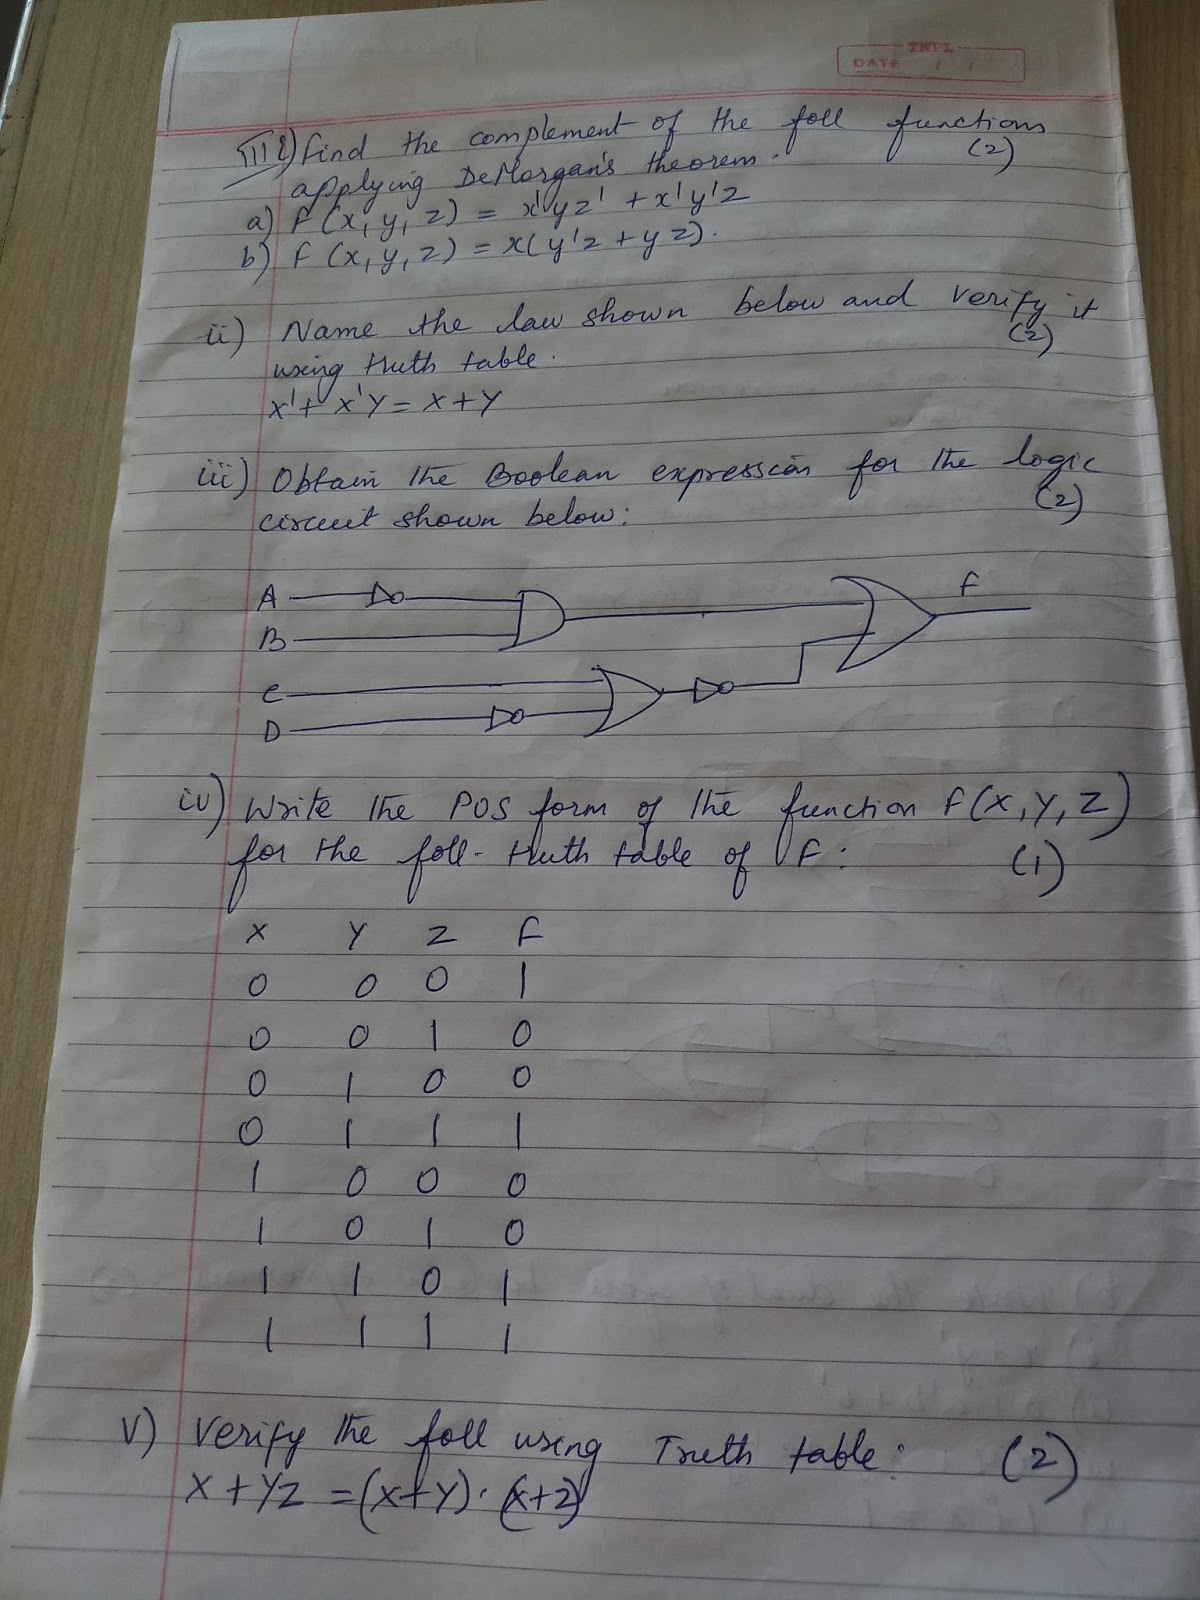 TNPL
DATE / /
III i) Find the complement of the foll functions
applying DeMorgan's theorem. (2)
a) F(x, y, z) = x'yz' + x'y'z
b) F(x, y, z) = x(y'z + yz).
ii) Name the law shown below and verify it
using truth table. (2)
x' + x'y = x + y
iii) Obtain the Boolean expression for the logic
circuit shown below: (2)
A
F
B
C
D
iv) Write the POS form of the function F(X, Y, Z)
for the foll. truth table of F: (1)
X Y Z F
0 0 0 1
0 0 1 0
0 1 0 0
0 1 1 1
1 0 0 0
1 0 1 0
1 1 0 1
1 1 1 1
v) Verify the foll using Truth table: (2)
X + YZ = (X+Y)·(X+Z)